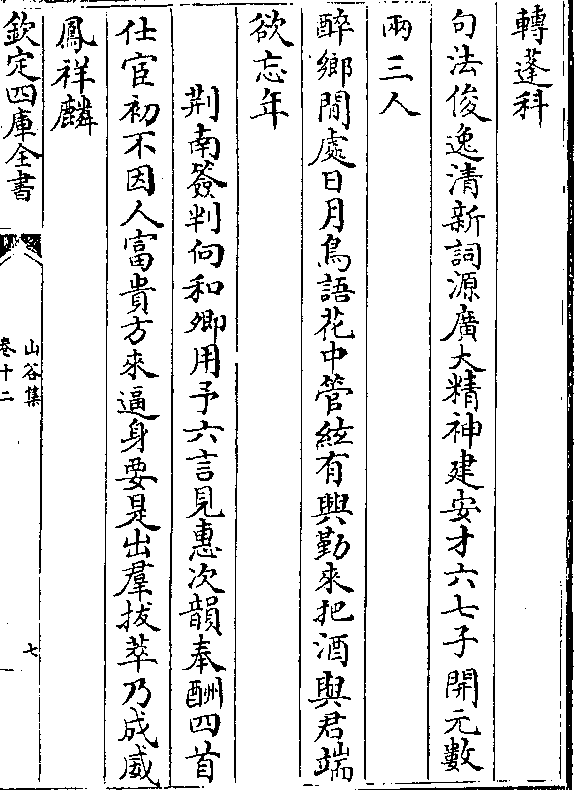 轉蓬科
句法俊逸清新詞源廣大精神建安才六七子開元數
兩三人
醉鄉閒處日月鳥語花中管絃有興勤來把酒與君端
欲忘年
荆南簽判向和卿用予六言見惠次韻奉酬四首
仕宦初不因人富貴方來逼身要是出羣拔萃乃成威
鳳祥麟
欽定四庫全書
山谷集
卷十二
七